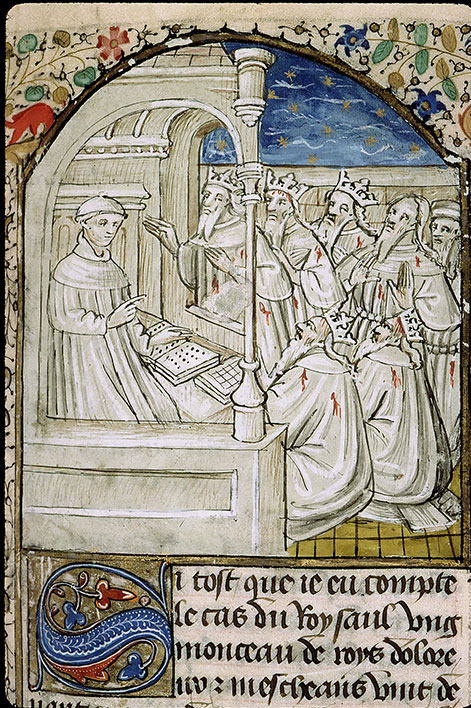 Si tost que ie eu compte
le cas du Roy saul vng
monceau de roys dolore
ux ⁊ mescheans vint de